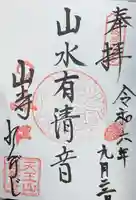 奉拝
令和六年九月三日
山水有清音
山寺